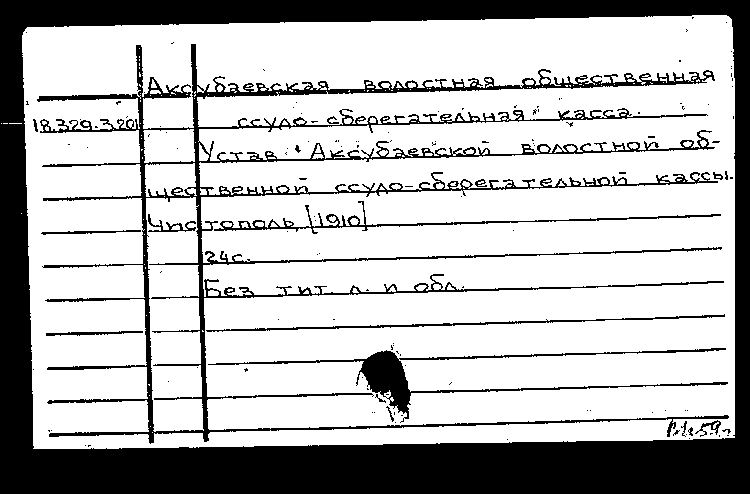 Аксубаевская волостная общественная
18.329.3.201 ссудо-сберегательная касса.
Устав Аксубаевской волостной об-
щественной ссудо-сберегательной кассы.
Чистополь, [1910]
24с.
Без тит. л. и обл.